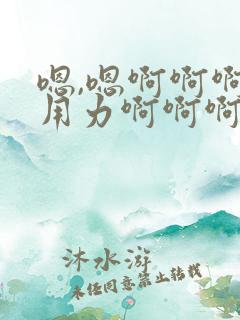 嗯,嗯啊啊啊
用力啊啊啊
沐水游
未经同意禁止转载